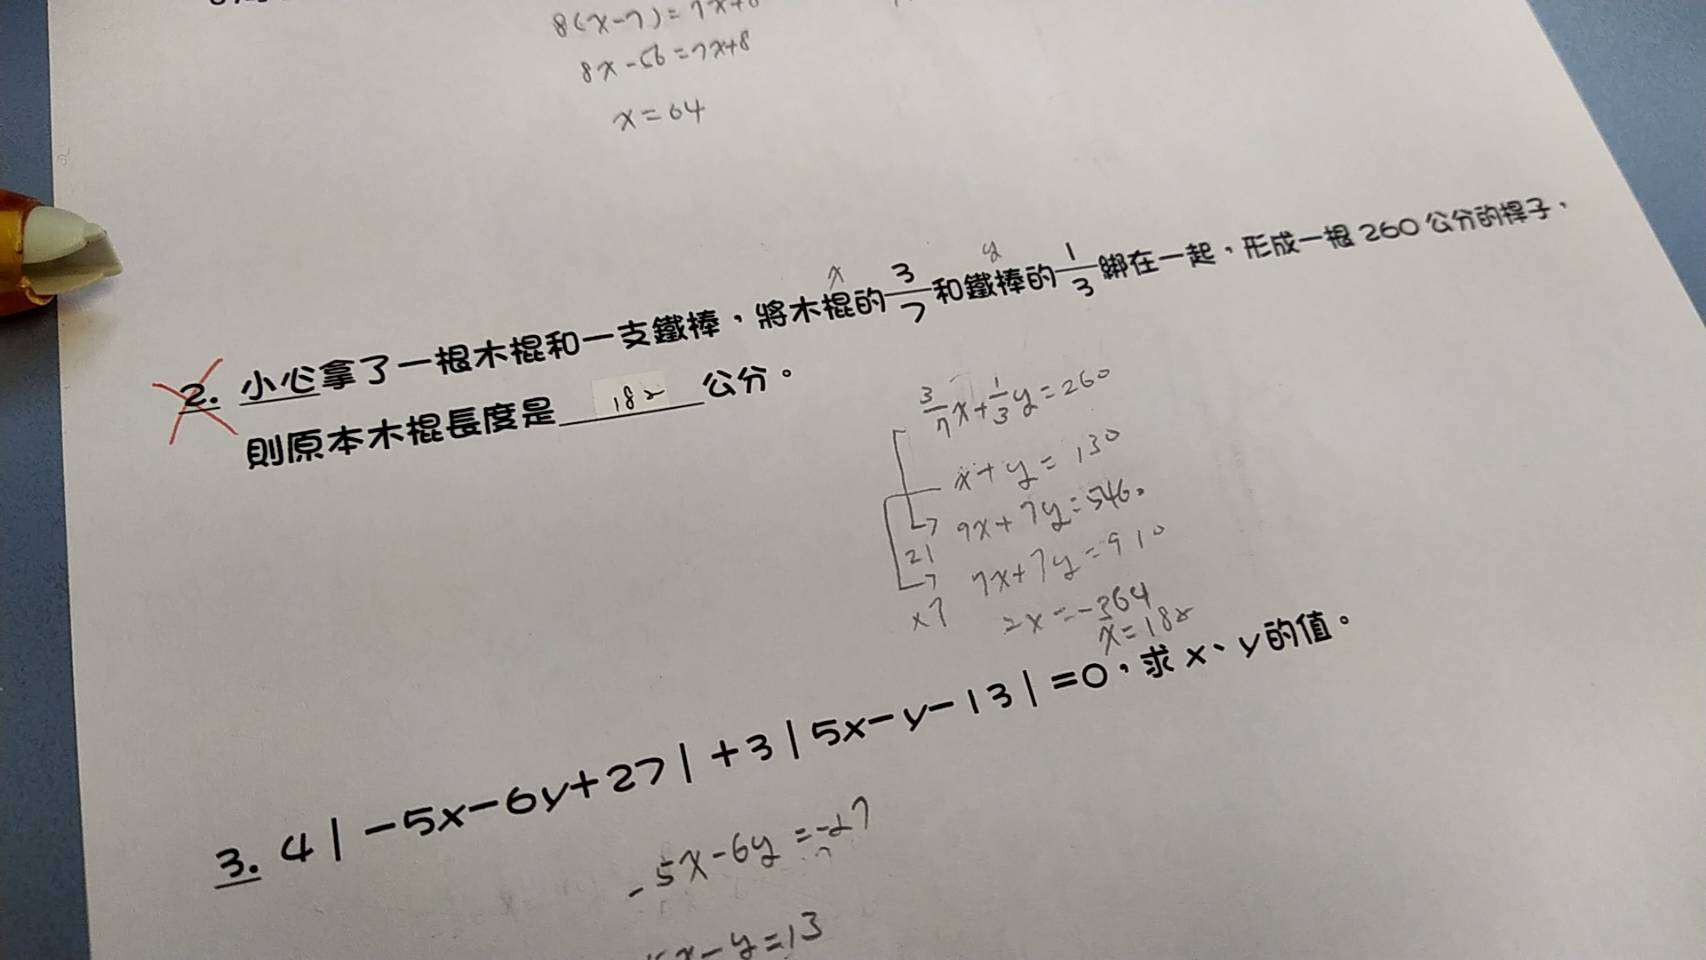 8(x-7)=7x+8
8x-56=7x+8
x=64
x
y
2. 小心拿了一根木棍和一支鐵棒，將木棍的3/7和鐵棒的1/3綁在一起，形成一根260公分的桿子，
則原本木棍長度是 182 公分。
3/7x+1/3y=260
x+y=130
9x+7y=5460
21
7x+7y=910
x7
2x=-364
x=182
3. 4|-5x-6y+27|+3|5x-y-13|=0，求x、y的值。
-5x-6y=-27
5x-y=13